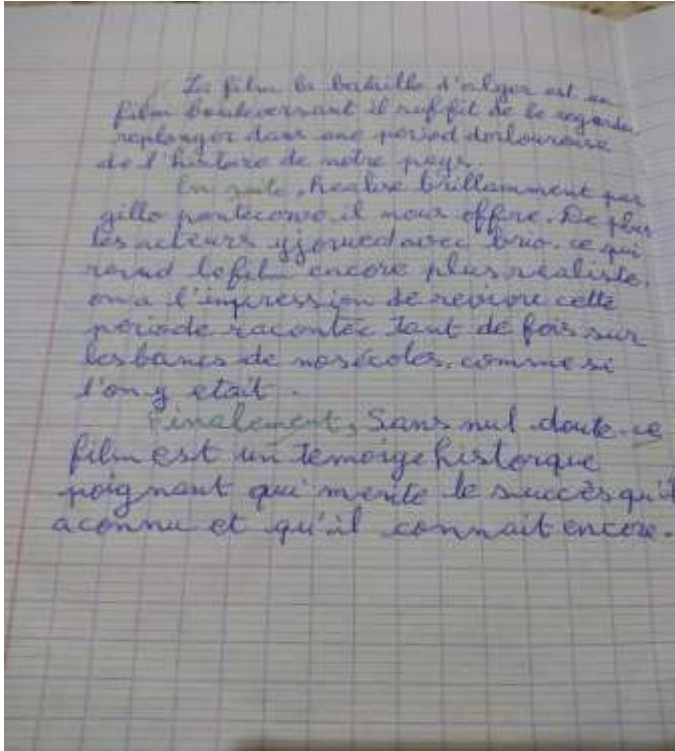 Le film la bataille d'alger est un
film bouleversant il suffit de le regarder
replonger dans une périod douloureuse
de l'histoire de notre pays.
En suite, Réalise brillamment par
gillo pontecorvo il nous offre. De plus
les acteurs y joued avec brio. ce qui
rend le film encore plus réaliste.
on a l'impression de revivre cette
période racontée tant de fois sur
les bancs de nos écoles. comme si
l'on y etait.
Finalement, Sans nul doute ce
film est un temoige historique
poignant qui merite le succès qu'il
a connu et qu'il connait encore.